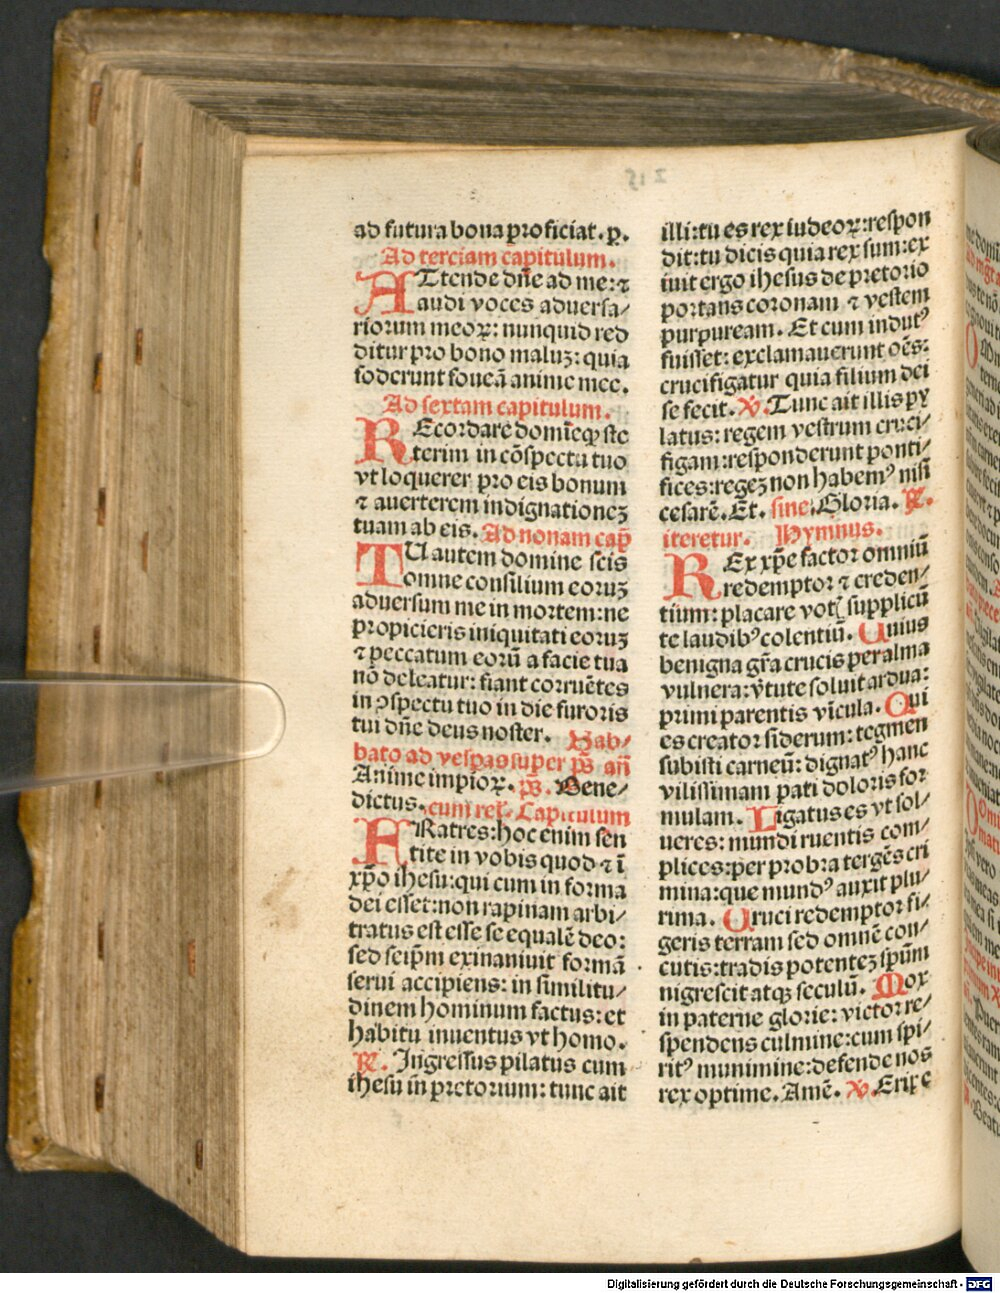 ad futura bona proficiat. ꝑ.
Ad terciam capitulum.
ATtende dn̄e ad me: ⁊
audi voces aduersa⸗
riorum meoꝝ: nunquid red
ditur pro bono maluꝫ: quia
foderunt foueā anime mee.
Ad sextam capitulum.
REcordare domīeqꝫ ste
terim in cōspectu tuo
vt loquerer pro eis bonum
⁊ auerterem indignationeꝫ
tuam ab eis. Ad nonam cap̄
TU autem domine scis
omne consilium eoruꝫ
aduersum me in mortem: ne
propicieris iniquitati eoruꝫ
⁊ peccatum eorū a facie tua
nō deleatur: fiant corruētes
in ꝯspectu tuo in die furoris
tui dn̄e deus noster. Sab⸗
bato ad vesperas super p̄s an̄
Anime impioꝝ. p̄s. Bene⸗
dictus. cum rel. Capitulum
FRatres: hoc enim sen
tite in vobis quod ⁊ ī
xp̄o ihesu: qui cum in forma
dei esset: non rapinam arbi⸗
tratus est esse se equalē deo:
sed seip̄m exinaniuit formā
serui accipiens: in similitu⸗
dinem hominum factus: et
habitu inuentus vt homo.
℟. Ingressus pilatus cum
ihesu in pretorium: tunc ait
illi: tu es rex iudeoꝝ: respon
dit: tu dicis quia rex sum: ex
iuit ergo ihesus de pretorio
portans coronam ⁊ vestem
purpuream. Et cum indutꝰ
fuisset: exclamauerunt oēs:
crucifigatur quia filium dei
se fecit. ℣. Tunc ait illis py
latus: regem vestrum cruci⸗
figam: responderunt ponti⸗
fices: regeꝫ non habemꝰ nisi
cesarē. Et. sine. Gloria. ℟.
iteretur. Hymnus.
REx xp̄e factor omniū
redemptor ⁊ creden⸗
tium: placare votꝭ supplicū
te laudibꝰ colentiū. Cuius
benigna gr̄a crucis per alma
vulnera: v̄tute soluit ardua:
primi parentis vīcula. Qui
es creator siderum: tegmen
subisti carneū: dignatꝰ hanc
vilissimam pati doloris for
mulam. Ligatus es vt sol⸗
ueres: mundi ruentis com⸗
plices: per probra tergēs cri
mina: que mundꝰ auxit plu⸗
rima. Cruci redemptor fi⸗
geris terram sed omnē con⸗
cutis: tradis potenteꝫ spūm
nigrescit atqꝫ seculū. Mox
in paterne glorie: victor re⸗
splendens culmine: cum spi⸗
ritꝰ munimine: defende nos
rex optime. Amē. ℣. Eripe
Digitalisierung gefördert durch die Deutsche Forschungsgemeinschaft - DFG